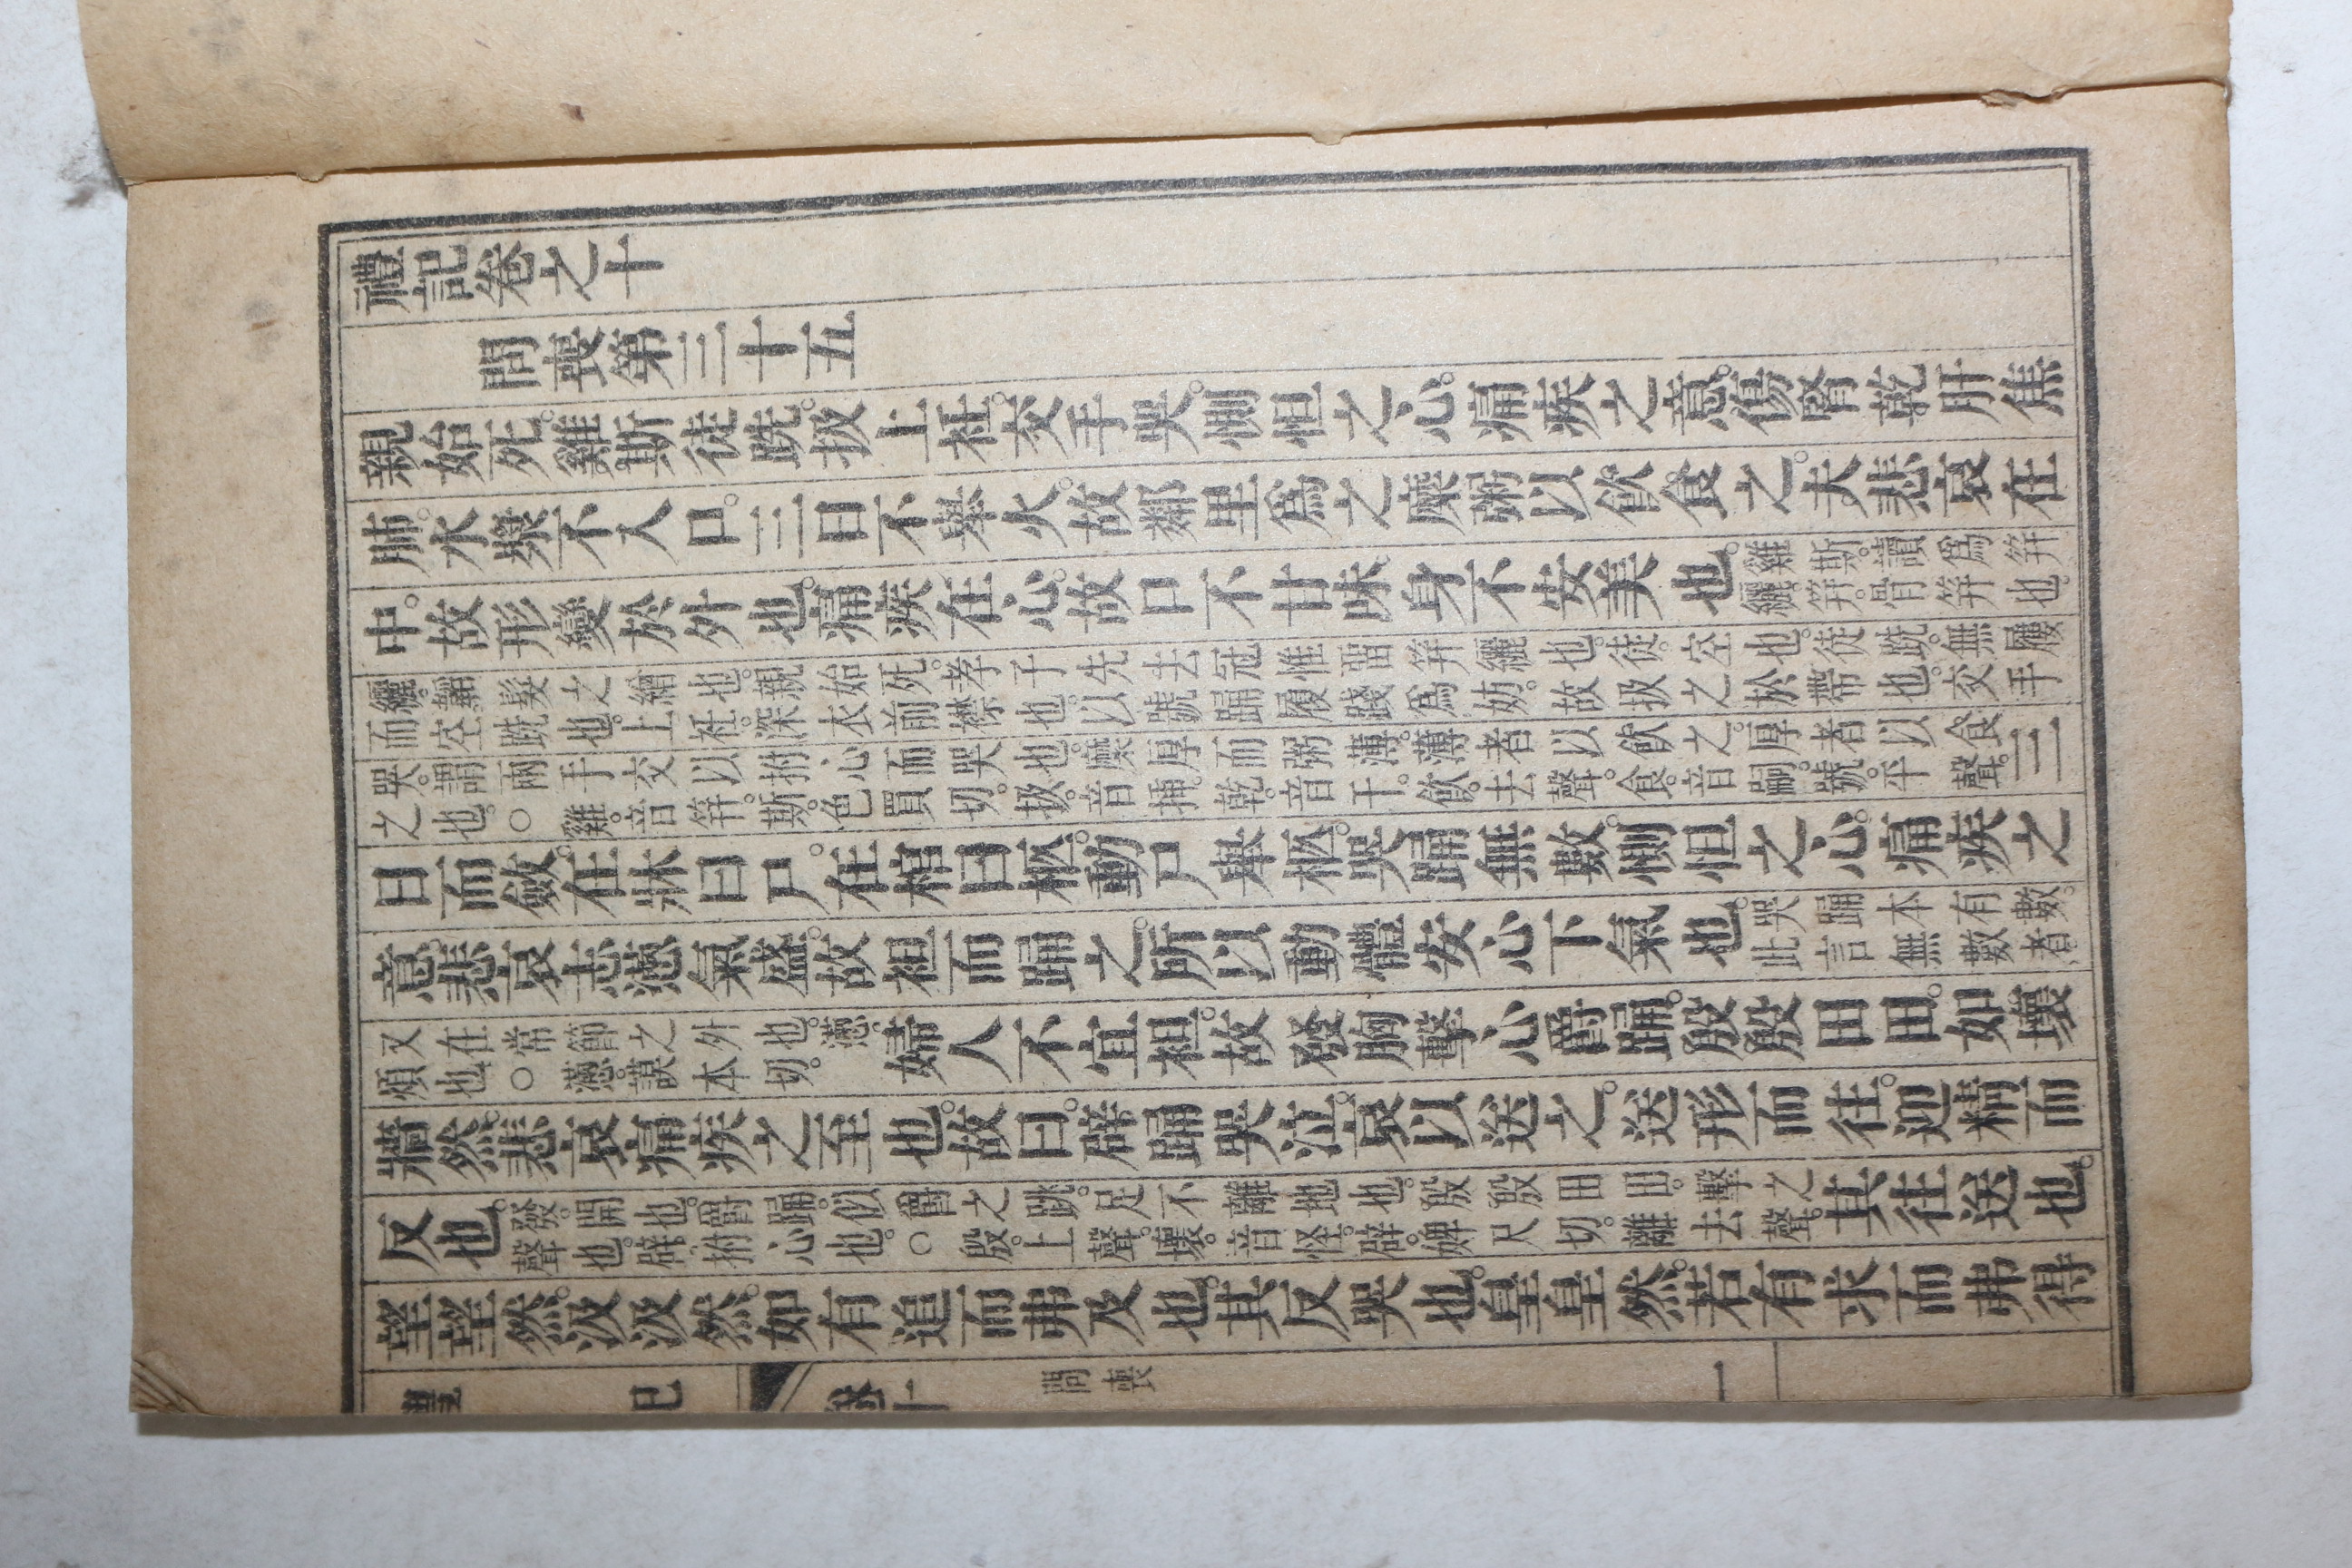 禮記卷之十
問喪第三十五
親始死。雞斯徒跣。扱上衽。交手哭。惻怛之心。痛疾之意。傷腎乾肝焦
肺。水漿不入口。三日不舉火。故鄰里爲之糜粥以飮食之。夫悲哀在
中。故形變於外也。痛疾在心。故口不甘味身不安美也。雞斯。讀爲笄
纚。笄。骨笄也。
纚。韜髮之繒也。親始死。孝子先去冠惟留笄纚也。徒。空也。徒跣。無屨
而空跣也。上衽。深衣前襟也。以號踊履踐爲妨。故扱之於帶也。交手
哭。謂兩手交以拊心而哭也。糜厚而粥薄。薄者以飮之。厚者以食
之也。○雞。音笄。斯。色買切。扱。音揷。乾。音干。飮。去聲。食。音嗣。號。平聲。三
日而斂。在牀曰尸。在棺曰柩。動尸舉柩。哭踊無數。惻怛之心。痛疾之
意。悲哀志懣氣盛。故袒而踊之。所以動體安心下氣也。哭踊本有數。
此言無數者。
又在常節之外也。懣。
煩也。○懣。謨本切。婦人不宜袒。故發胸擊心爵踊。殷殷田田。如壞
牆然。悲哀痛疾之至也。故曰。辟踊哭泣。哀以送之。送形而往。迎精而
反也。發。開也。爵踊。似爵之跳。足不離地也。殷殷田田。擊之
聲也。辟。拊心也。○殷。上聲。壞。音怪。辟。婢尺切。離去聲。其往送也。
望望然。汲汲然。如有追而弗及也。其反哭也。皇皇然。若有求而弗得
禮記 卷十 問喪 一